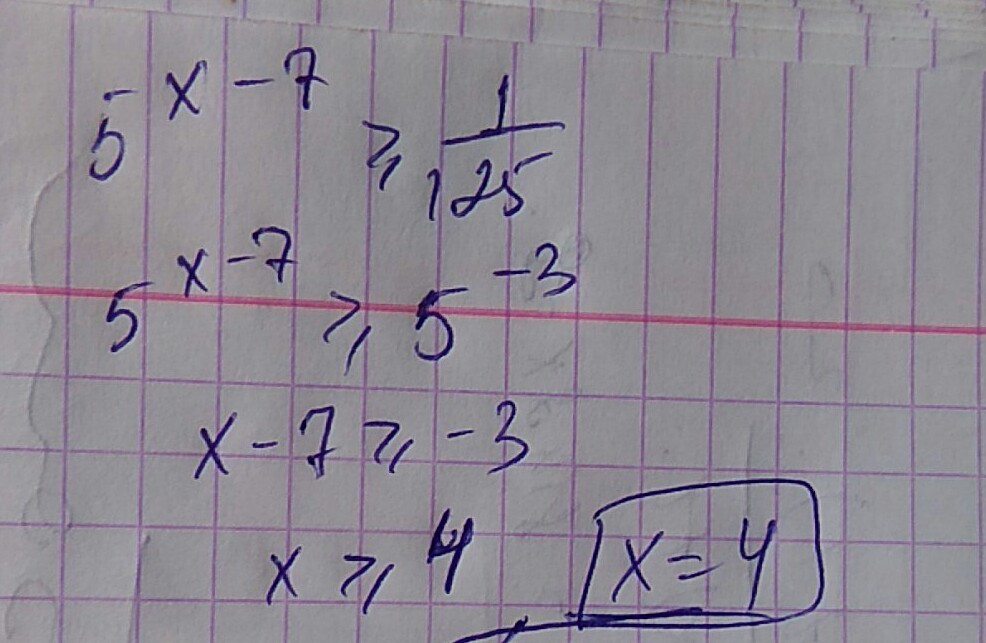 5^{x-7} ⩾ \frac{1}{125}
5^{x-7} ⩾ 5^{-3}
x-7 ⩾ -3
x ⩾ 4 x=4